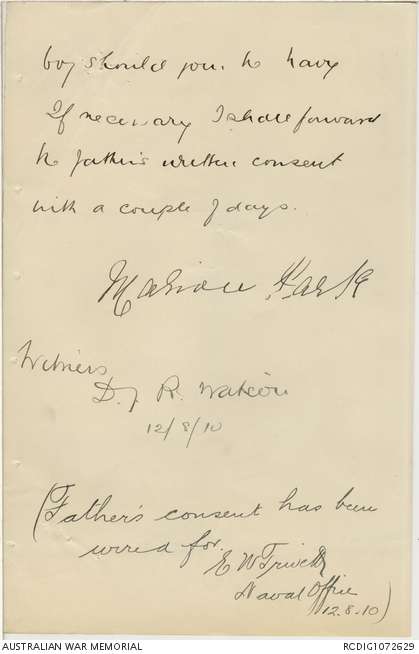 boy should join the Navy
If necessary I shall forward
the father's written consent
with a couple of days.
Marion Park
Witness
D. J. R. Watson
12/8/10
(Father's consent has been
wired for.
E W Trivett
Naval Office
12.8.10)
AUSTRALIAN WAR MEMORIAL
RCDIG1072629